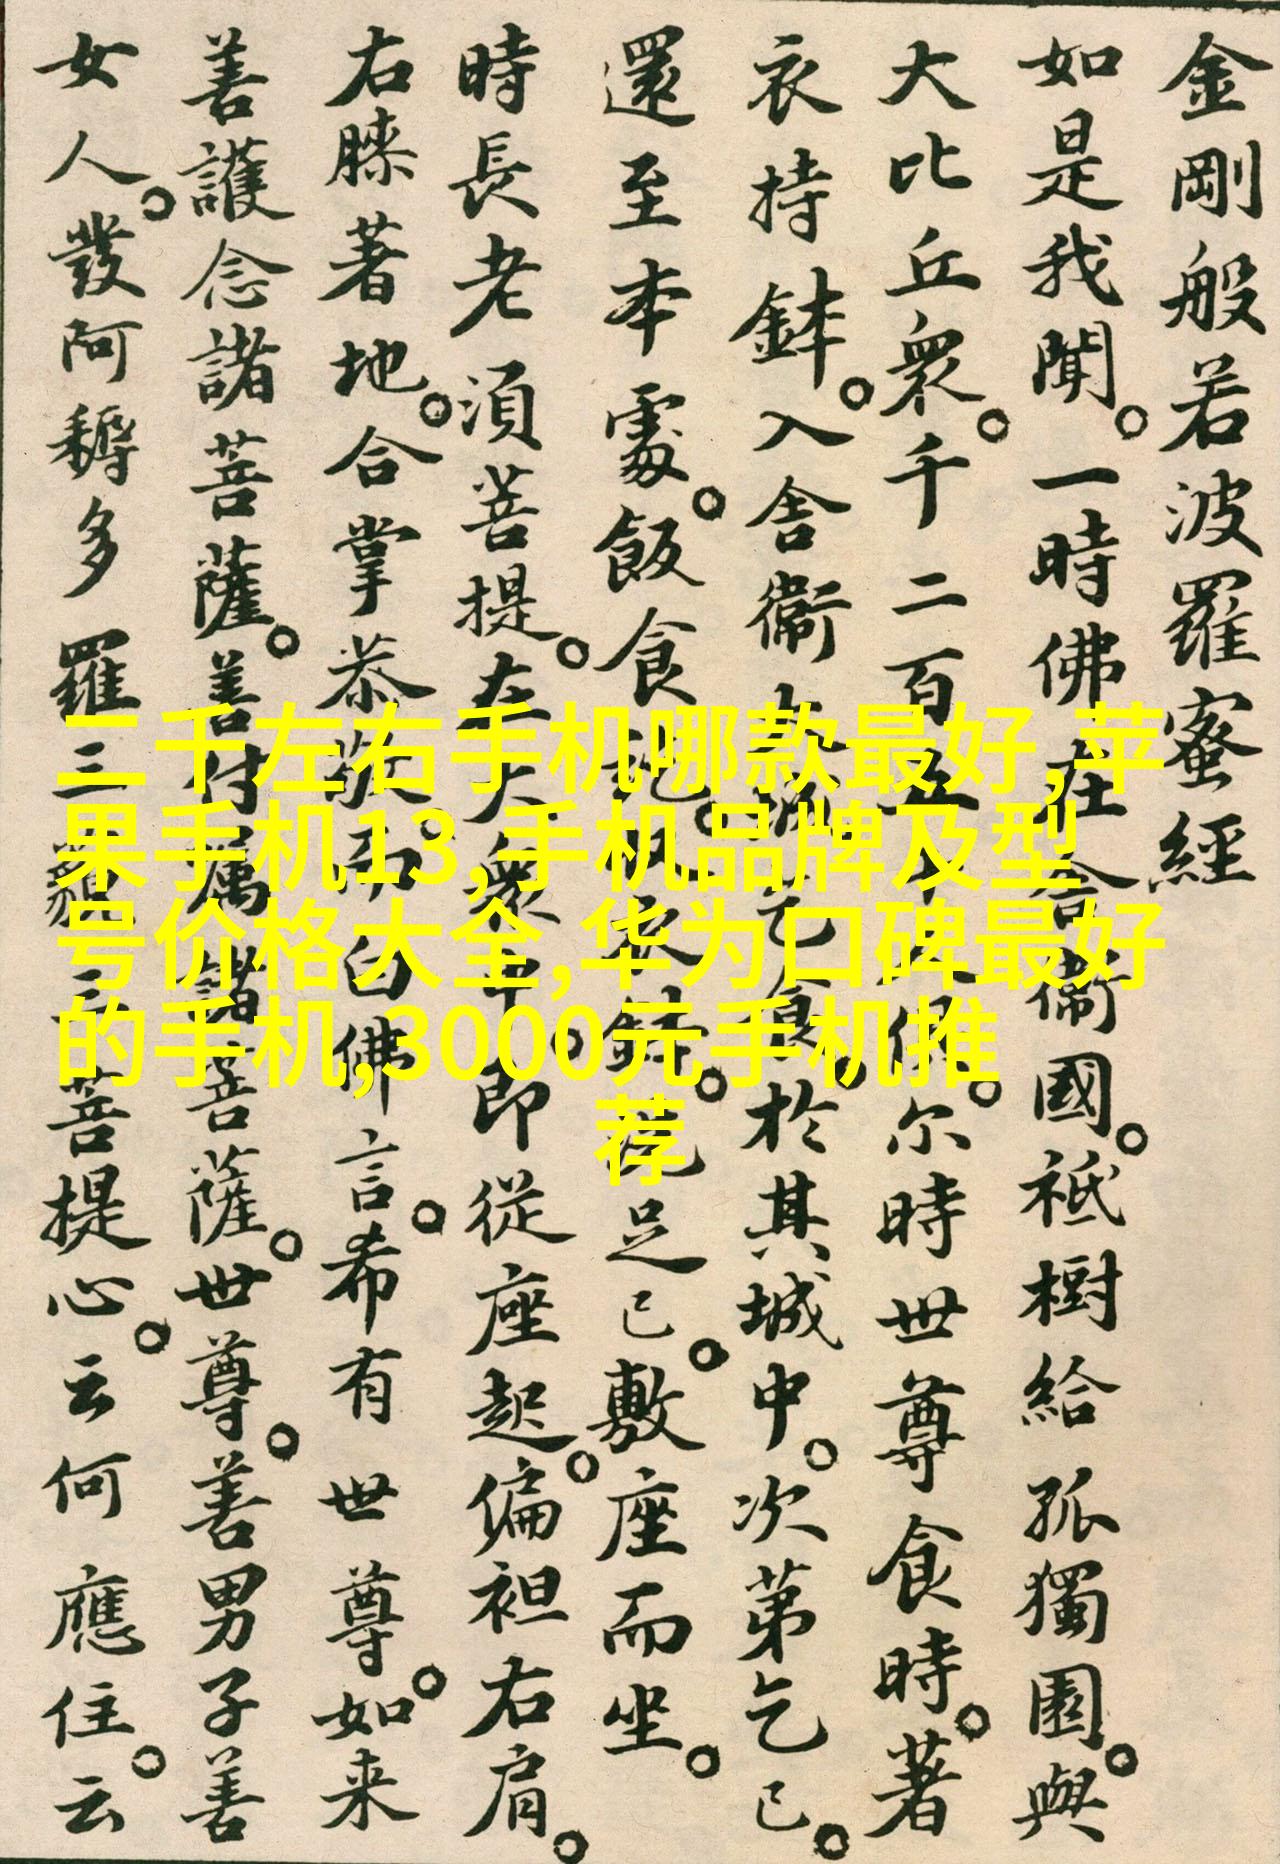 金剛般若波羅蜜經
如是我聞。一時佛在舍衞國。祇樹給孤獨園。與
大比丘衆。千二百五十人俱。尔時世尊食時。著
衣持鉢。入舍衞大城乞食。於其城中。次第乞已。
還至本處。飯食訖。收衣鉢。洗足已。敷座而坐。
時長老須菩提。在大衆中。即從座起。偏袒右肩。
右膝著地。合掌恭敬。而白佛言。希有世尊。如来
善護念諸菩薩。善付属諸菩薩。世尊。善男子善
女人。發阿耨多羅三藐三菩提心。云何應住。云
二千左右手机哪款最好,苹
果手机13,手机品牌及型
号价格大全,华为口碑最好
的手机,3000元手机推
荐